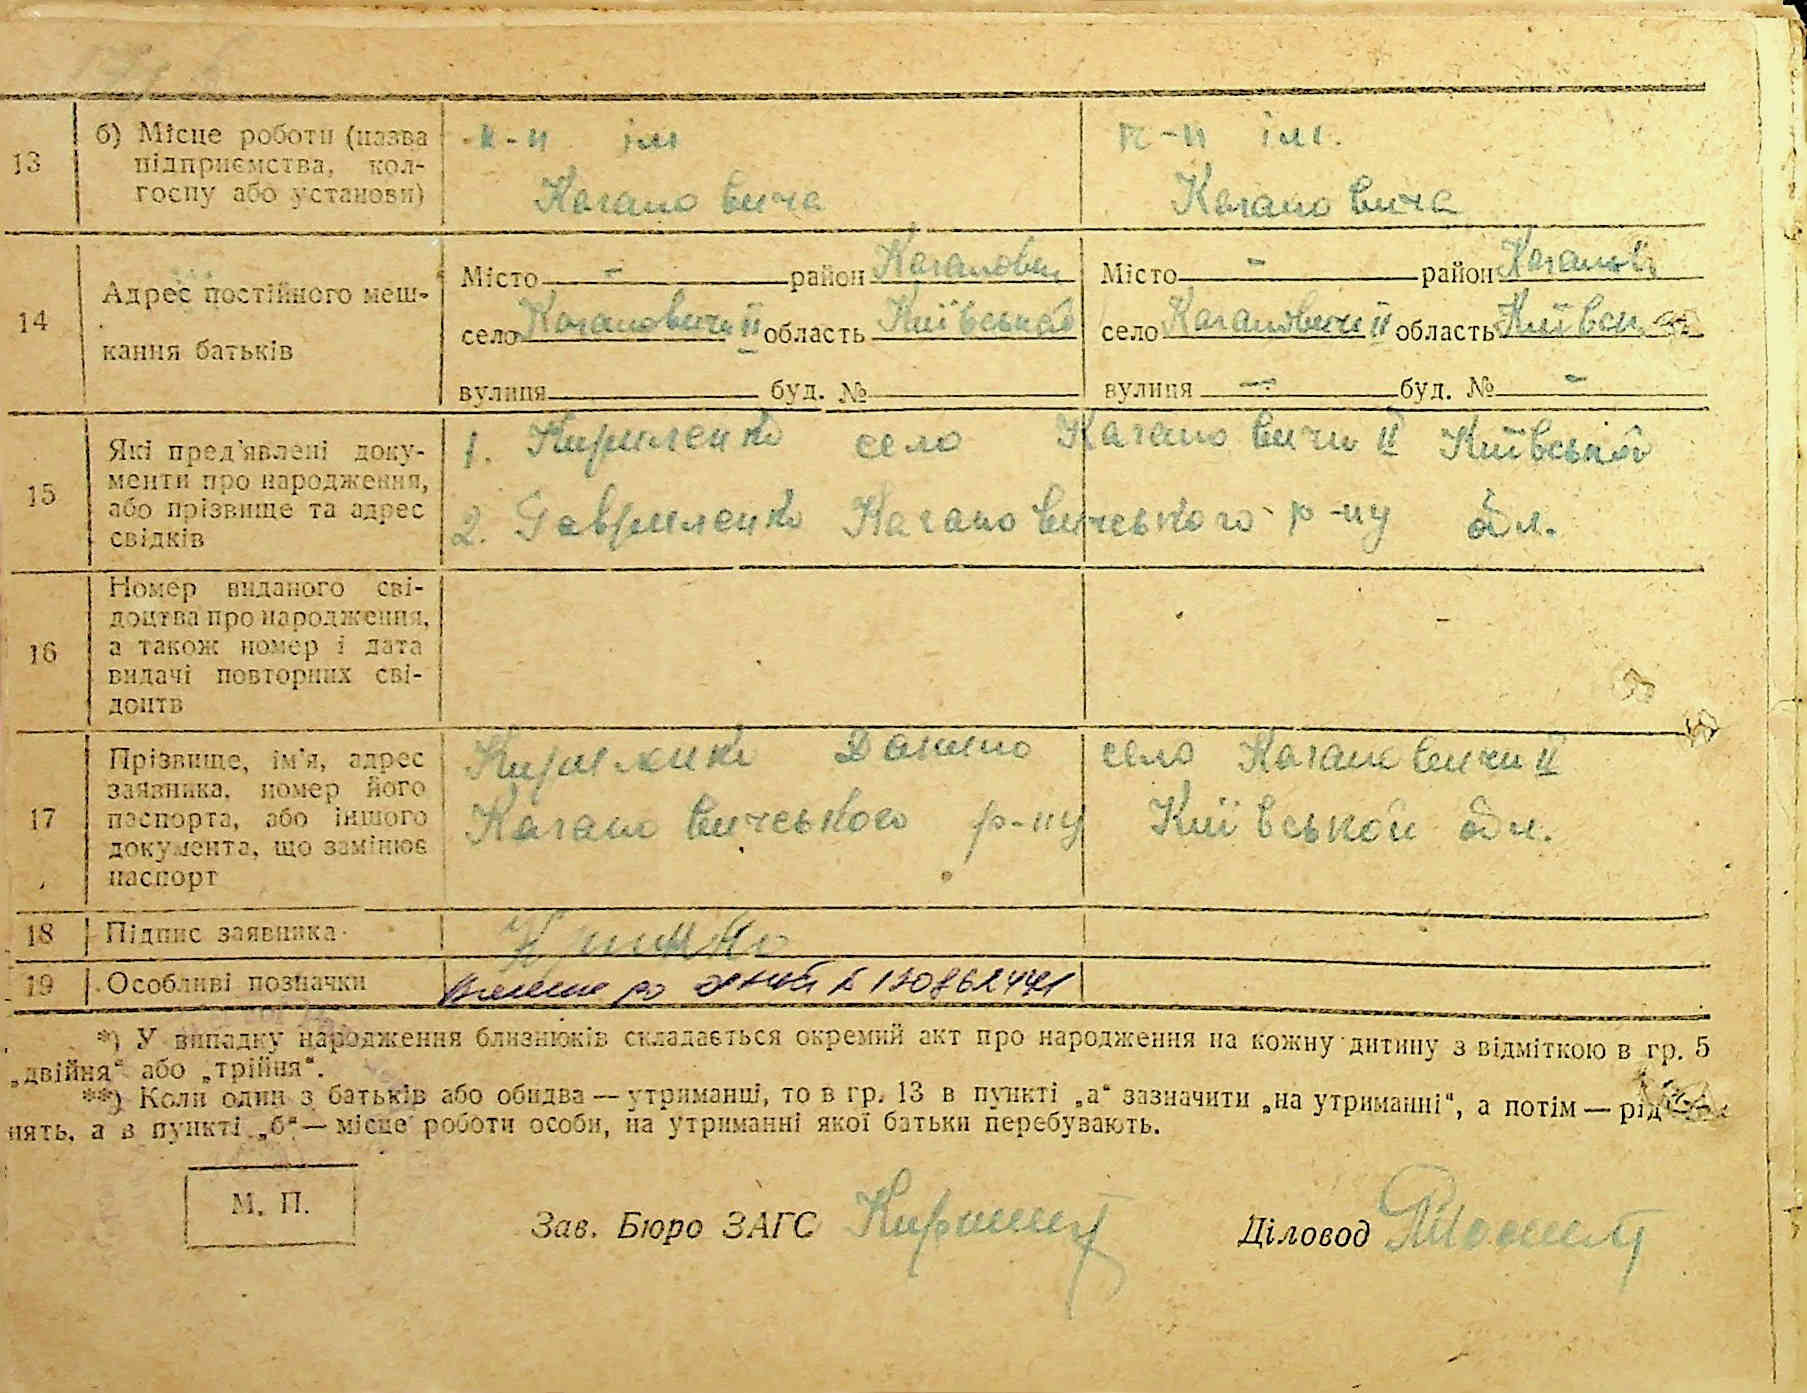 13 б) Місце роботи (назва підприємства, колгоспу або установи)
к-п ім
Кагановича
к-п ім.
Кагановича
14 Адрес постійного мешкання батьків
Місто - район Каганович
село Кагановичи II область Київської
вулиця буд. №
Місто - район Каганов
село Кагановичи II область Київськ
вулиця - буд. № -
15 Які пред'явлені документи про народження, або прізвище та адрес свідків
1. Кириленко село Кагановичи II Київської
2. Гавриленко Кагановичського р-ну обл.
16 Номер виданого свідоцтва про народження, а також номер і дата видачі повторних свідоцтв
17 Прізвище, ім'я, адрес заявника, номер його паспорта, або іншого документа, що замінює паспорт
Данило село Кагановичи II
Кагановичського р-ну Київськой обл.
18 Підпис заявника
19 Особливі позначки
*) У випадку народження близнюків складається окремий акт про народження на кожну дитину з відміткою в гр. 5
„двійня“ або „трійня“.
**) Коли один з батьків або обидва — утриманці, то в гр. 13 в пункті „а“ зазначити „на утриманні“, а потім — рід
нять, а в пункті „б“ — місце роботи особи, на утриманні якої батьки перебувають.
М. П.
Зав. Бюро ЗАГС
Діловод